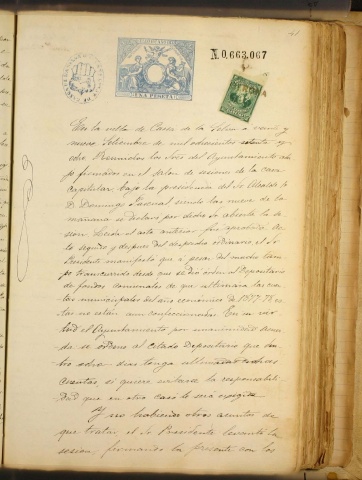 41
N.0,663,067
UNA PESETA
En la villa de Casas de la Selva a veinte y
nueve Setiembre de mil ochocientos setenta y
ocho. Reunidos los Sres del Ayuntamiento
firmados en el salon de sesiones de la casa
capitular, bajo la presidencia del Sr Alcalde
D. Domingo Pascual siendo las nueve de la
mañana se declaró por dicho Sr abierta la se-
sion. Leida el acta anterior fué aprobada. Ac-
to seguido y despues del despacho ordinario el Sr
Presidente manifestó que á pesar del mucho tiem-
po trascurrido desde que se dió orden al Depositario
de fondos comunales de que ultimara las cuen-
tas municipales del año económico de 1877-78
las no están aun confeccionadas. En su vir-
tud el Ayuntamiento por unanimidad acuer-
da se ordene al citado Depositario que
ocho dias tenga ultimadas dichas
cuentas si quiere evitarse la responsabili-
dad que en otro caso le será exigida.
Y no habiendo otros asuntos de
que tratar, el Sr Presidente levantó la
sesion, firmando la presente con los